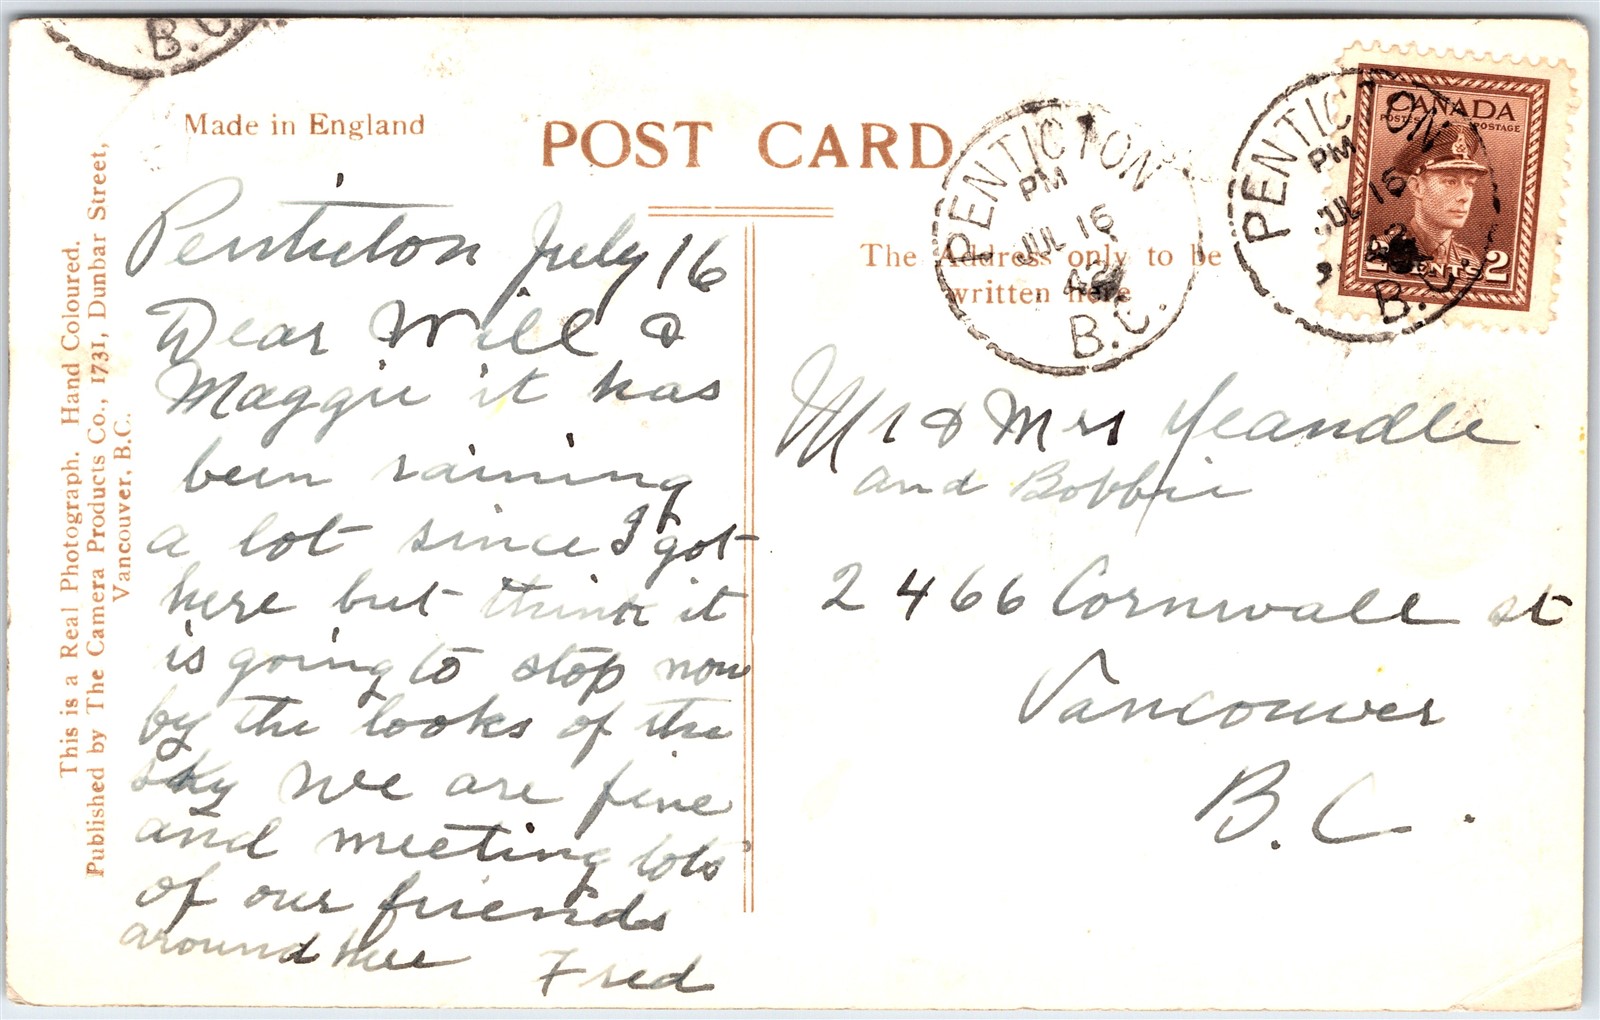 B.C.
Made in England
POST CARD
This is a Real Photograph. Hand Coloured.
Published by The Camera Products Co., 1731, Dunbar Street,
Vancouver, B.C.
Penticton July 16
Dear Will &
Maggie it has
been raining
a lot since I got
here but think it
is going to stop now
by the looks of the
sky we are fine
and meeting lots
of our friends
around here Fred
The Address only to be
written here
PENTICTON
PM
JUL 16
42
B.C.
PENTICTON
PM
JUL 16
42
B.C.
CANADA
POSTES POSTAGE
2 CENTS 2
Mr & Mrs Yeandle
and Bobbie
2466 Cornwall st
Vancouver
B.C.